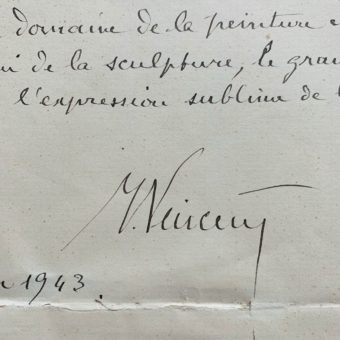 domaine de la peinture
de la sculpture, le gran
l'expression sublime de
Vincent
1943.